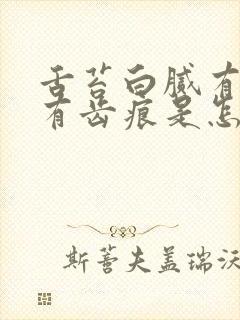 舌苔白腻有
有齿痕是怎
斯蓍夫盖瑞沃